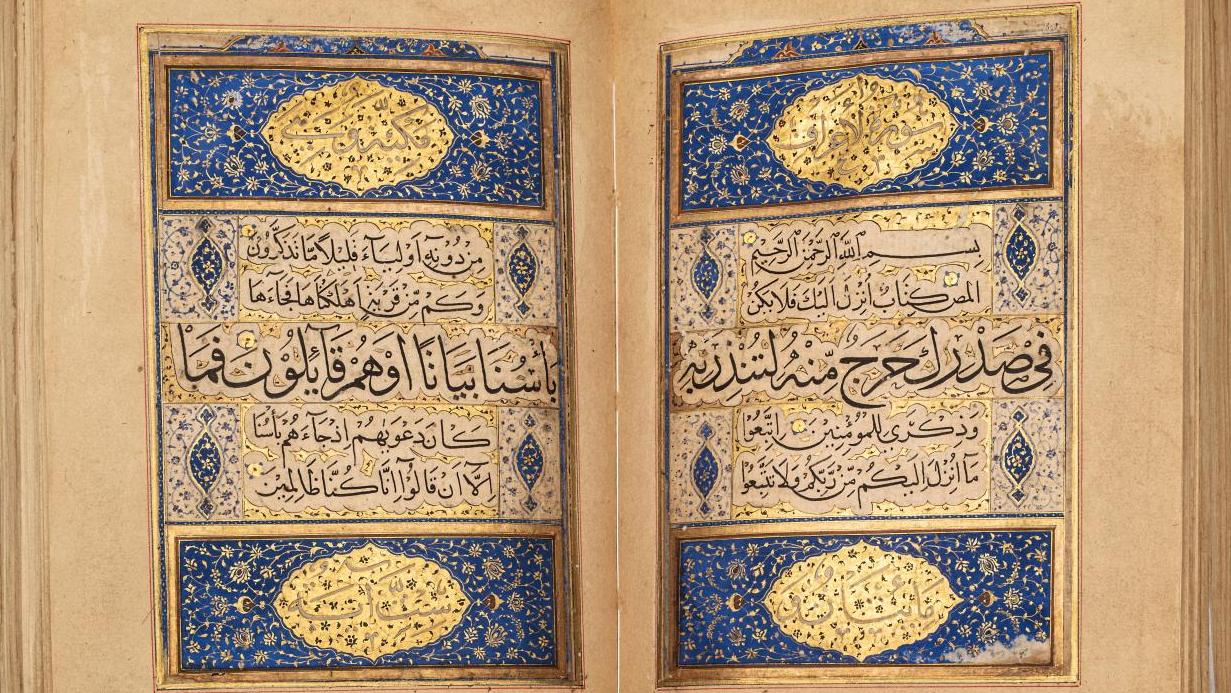 سورة الاعراف
بِسْمِ اللّٰهِ الرَّحْمٰنِ الرَّحِيمِ
المص كِتَابٌ اُنْزِلَ اِلَيْكَ فَلَا يَكُنْ
فِي صَدْرِكَ حَرَجٌ مِّنْهُ لِتُنْذِرَ بِهِ
وَذِكْرٰى لِلْمُؤْمِنِينَ اتَّبِعُوا
مَآ اُنْزِلَ اِلَيْكُمْ مِّنْ رَّبِّكُمْ وَلَا تَتَّبِعُوا
مائتان و
مكية وهي
مِنْ دُونِهٓ اَوْلِيَآءَ قَلِيلًا مَّا تَذَكَّرُونَ
وَكَمْ مِّنْ قَرْيَةٍ اَهْلَكْنَاهَا فَجَآءَهَا
بَأْسُنَا بَيَاتًا اَوْ هُمْ قَآئِلُونَ فَمَا
كَانَ دَعْوٰيهُمْ اِذْ جَآءَهُمْ بَأْسُنَا
اِلَّآ اَنْ قَالُوٓا اِنَّا كُنَّا ظَالِمِينَ
ست آية